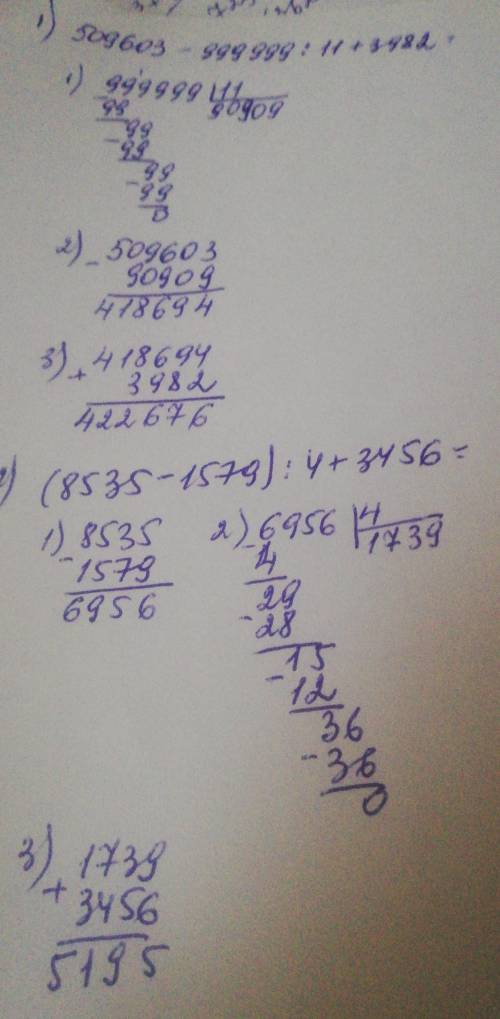 1) 509603 - 999999 : 11 + 3982 =
1) 999999 | 11
99 90909
- 99
99
- 99
99
0
2) - 509603
90909
418694
3) + 418694
3982
422676
(8535 - 1579) : 4 + 3456 =
1) 8535
- 1579
6956
2) - 6956 | 4
4 1739
29
- 28
15
- 12
36
- 36
0
3) 1739
+ 3456
5195